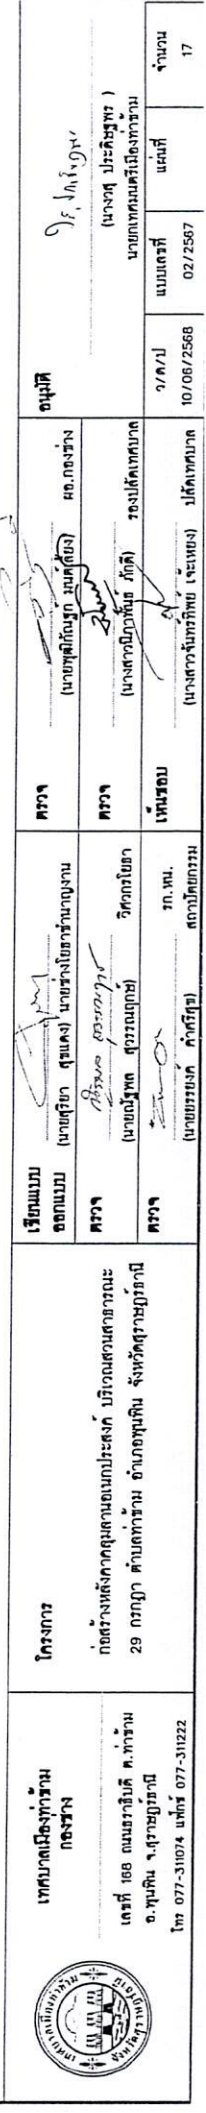 เทศบาลเมืองท่าข้าม
กองช่าง
เลขที่ 168 ถนนธราธิบดี ต.ท่าข้าม
อ.พุนพิน จ.สุราษฎร์ธานี
โทร 077-311074 แฟกซ์ 077-311222
โครงการ
ก่อสร้างหลังคาคลุมลานอเนกประสงค์ บริเวณสวนสาธารณะ
29 กรกฎา ตำบลท่าข้าม อำเภอพุนพิน จังหวัดสุราษฎร์ธานี
เขียนแบบ
ออกแบบ
(นายสุริยา สุขแดง) นายช่างโยธาชำนาญงาน
ตรวจ
วิศวกรโยธา
(นายณัฐพล สุวรรณฤกษ์)
ตรวจ
รก.หน.
สถาปัตยกรรม
ตรวจ
ผอ.กองช่าง
ตรวจ
รองปลัดเทศบาล
(นางสาวนิภาพันธ์ ภักดี)
เห็นชอบ
(นางสาวจันทร์ทิพย์ เจะเหยง) ปลัดเทศบาล
อนุมัติ
นายกเทศมนตรีเมืองท่าข้าม
ว/ด/ป
แบบเลขที่
แผ่นที่
จำนวน
10/06/2568
02/2567
17